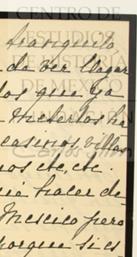 CENTRO DE
ESTUDIOS
DE HISTORIA
DE MEXICO
tranquilo,
da ver llegar
los que ya
muchos ha
casinos, villas
nos etc, etc.
hacer de
Mexico pero
porque si es